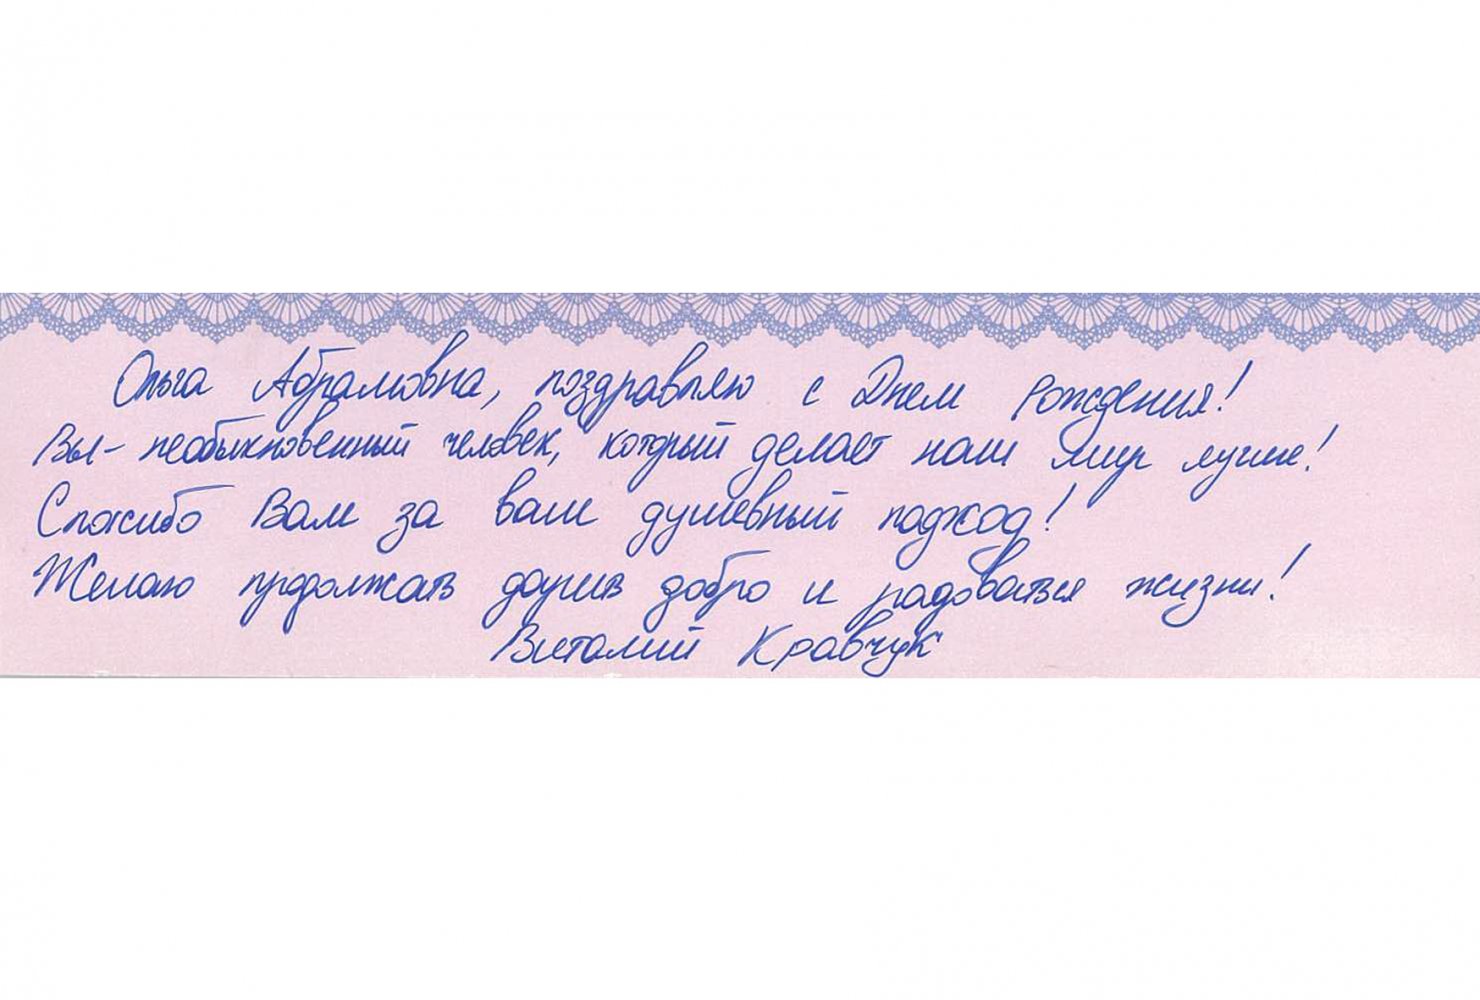 Ольга Абрамовна, поздравляю с Днем рождения!
Вы - необыкновенный человек, который делает наш мир лучше!
Спасибо Вам за ваш душевный подход!
Желаю продолжать дарить добро и радоваться жизни!
Виталий Кравчук